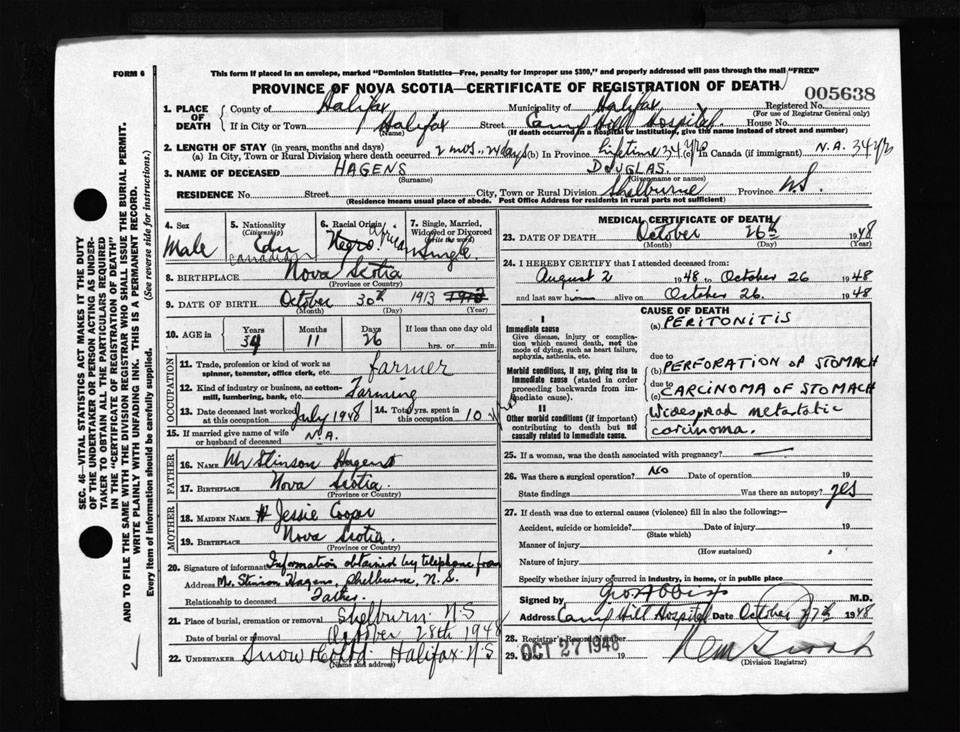 FORM 6
This form if placed in an envelope, marked "Dominion Statistics—Free, penalty for improper use $300," and properly addressed will pass through the mail "FREE"
PROVINCE OF NOVA SCOTIA—CERTIFICATE OF REGISTRATION OF DEATH
005638
1. PLACE OF DEATH County of Halifax Municipality of Halifax, Registered No.
(For use of Registrar General only)
If in City or Town Halifax Street Camp Hill Hospital House No.
(Name) (If death occurred in a hospital or institution, give the name instead of street and number)
2. LENGTH OF STAY (in years, months and days)
(a) In City, Town or Rural Division where death occurred 2 mos. 24 days (b) In Province Lifetime 34 yrs (c) In Canada (if immigrant) N.A. 34 yrs
3. NAME OF DECEASED HAGENS DOUGLAS
(Surname) (Given name or names)
RESIDENCE No. Street City, Town or Rural Division Shelburne Province N.S.
(Residence means usual place of abode. Post Office Address for residents in rural parts not sufficient)
4. Sex 5. Nationality (Citizenship) 6. Racial Origin 7. Single, Married, Widowed or Divorced (Write the word)
Male Cdn Canadian Negro African Single
8. BIRTHPLACE Nova Scotia
(Province or Country)
9. DATE OF BIRTH October 30th 1913
(Month) (Day) (Year)
10. AGE in Years Months Days If less than one day old
34 11 26 hrs. or min.
OCCUPATION
11. Trade, profession or kind of work as spinner, teamster, office clerk, etc. farmer
12. Kind of industry or business, as cotton-mill, lumbering, bank, etc. Farming
13. Date deceased last worked at this occupation July 1948 14. Total yrs. spent in this occupation 10 yrs
15. If married give name of wife or husband of deceased N.A.
FATHER
16. NAME Mr Stinson Hagens
17. BIRTHPLACE Nova Scotia
(Province or Country)
MOTHER
18. MAIDEN NAME Jessie Cooper
19. BIRTHPLACE Nova Scotia.
(Province or Country)
20. Signature of informant Information obtained by telephone from
Address Mr. Stinson Hagens, Shelburne, N.S.
Relationship to deceased Father.
21. Place of burial, cremation or removal Shelburn N.S
Date of burial or removal October 28th 1948
22. UNDERTAKER Snow Halifax N.S
(Name and address)
MEDICAL CERTIFICATE OF DEATH
23. DATE OF DEATH October 26th 1948
(Month) (Day) (Year)
24. I HEREBY CERTIFY that I attended deceased from:
August 2 1948 to October 26 1948
and last saw him alive on October 26. 1948
CAUSE OF DEATH
I
Immediate cause
Give disease, injury or complication which caused death, not the mode of dying, such as heart failure, asphyxia, asthenia, etc.
(a) PERITONITIS
due to
Morbid conditions, if any, giving rise to immediate cause (stated in order proceeding backwards from immediate cause).
(b) PERFORATION OF STOMACH
due to
(c) CARCINOMA OF STOMACH
II
Other morbid conditions (if important) contributing to death but not causally related to immediate cause.
Widespread metastatic
carcinoma.
25. If a woman, was the death associated with pregnancy? —
26. Was there a surgical operation? NO Date of operation 19
State findings Was there an autopsy? yes
27. If death was due to external causes (violence) fill in also the following:—
Accident, suicide or homicide? Date of injury 19
(State which)
Manner of injury
(How sustained)
Nature of injury
Specify whether injury occurred in industry, in home, or in public place
Signed by M.D.
Address Camp Hill Hospital Date October 27th 1948
28. Registrar's Record Number
29. OCT 27 1948 19
(Division Registrar)
SEC. 46—VITAL STATISTICS ACT MAKES IT THE DUTY
OF THE UNDERTAKER OR PERSON ACTING AS UNDER-
TAKER TO OBTAIN ALL THE PARTICULARS REQUIRED
IN THE "CERTIFICATE OF REGISTRATION OF DEATH"
AND TO FILE THE SAME WITH THE DIVISION REGISTRAR WHO SHALL ISSUE THE BURIAL PERMIT.
WRITE PLAINLY WITH UNFADING INK. THIS IS A PERMANENT RECORD.
Every item of information should be carefully supplied. (See reverse side for instructions.)